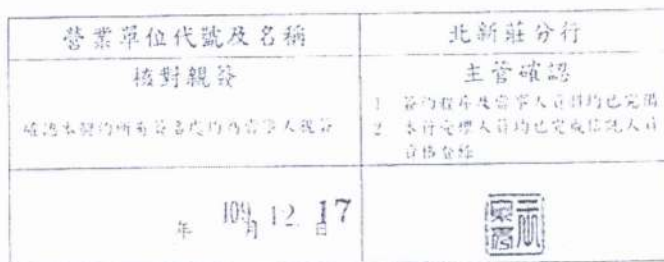 營業單位代號及名稱
北新莊分行
核對親簽
主管確認
確認本契約所有簽名處均為當事人親簽
1. 簽約程序及當事人資料均已完備
2. 本行受理人員均已完成信託人員
資格登錄
109 年 12 月 17 日